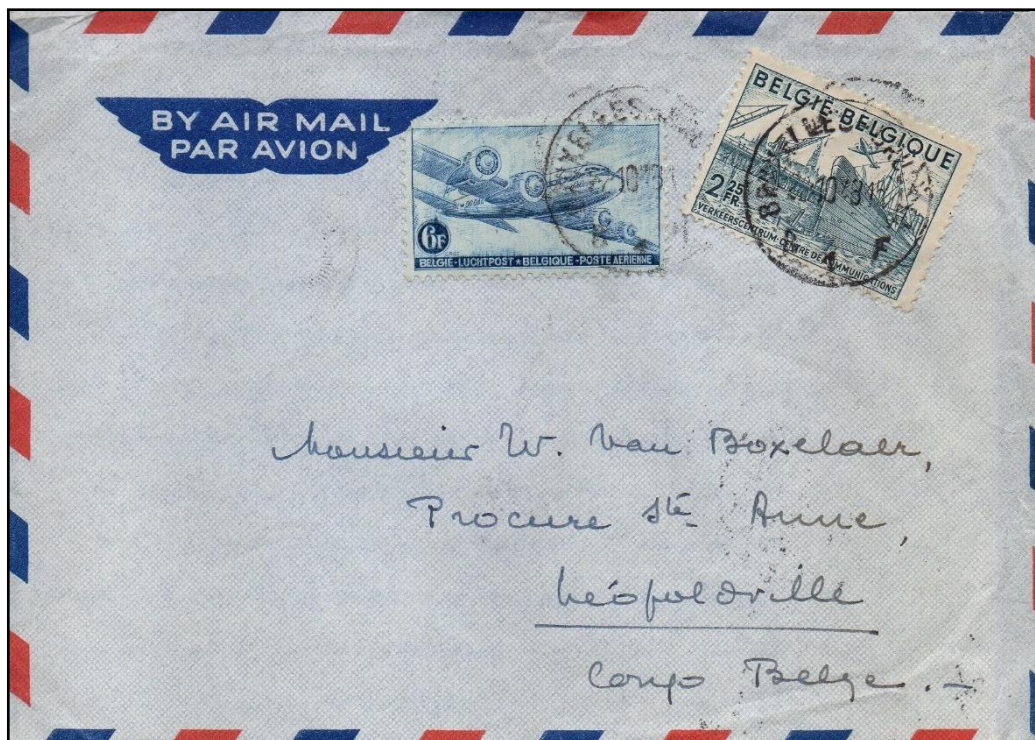 BY AIR MAIL
PAR AVION
6F
BELGIE-LUCHTPOST★BELGIQUE-POSTE AERIENNE
BELGIË-BELGIQUE
2 25
FR.
VERKEERSCENTRUM-CENTRE DE COMMUNICATIONS
Monsieur W. Van Boxelaer,
Procure Ste Anne,
Léopoldville
Congo Belge.-